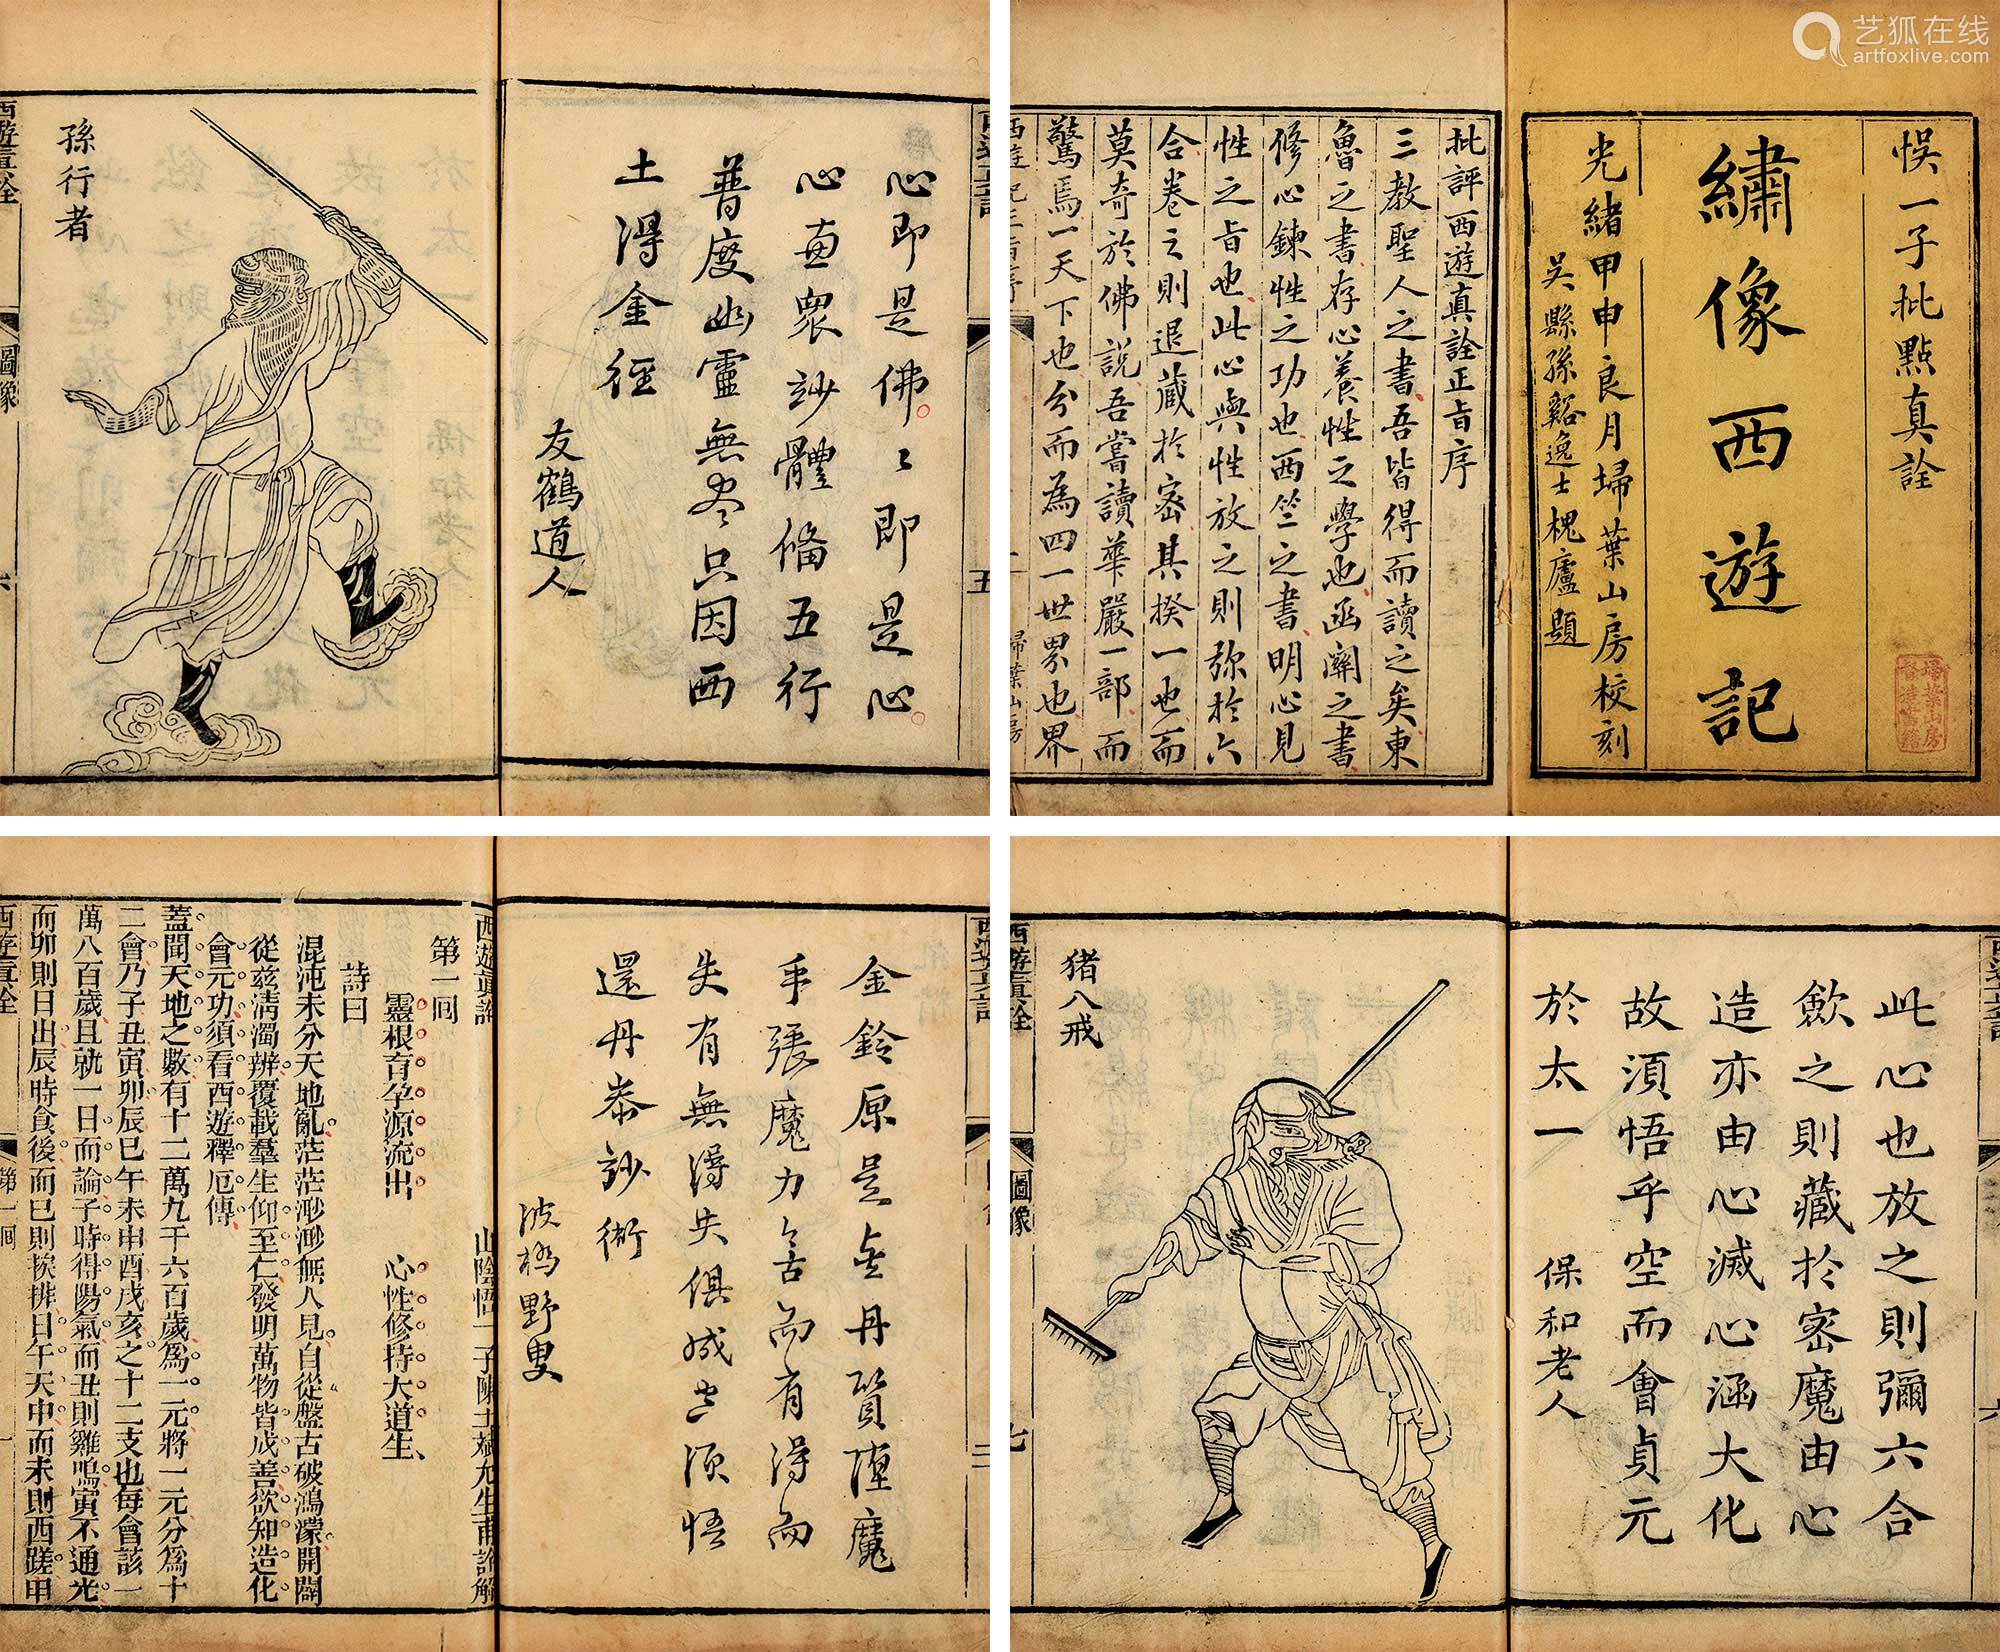 孫行者
圖像
心即是佛〻即是心
心畫眾妙體備五行
普度幽靈無岑只因西
土得金徑
友鶴道人
五
艺狐在线
artfoxlive.com
悞一子批點真詮
繡像西遊記
光緒甲申良月埽葉山房校刻
吳縣孫谿逸士槐廬題
埽葉山房
督造書籍
批評西遊真詮正旨序
三教聖人之書吾皆得而讀之矣東
魯之書存心養性之學也函關之書
修心鍊性之功也西竺之書明心見
性之旨也此心與性放之則弥於六
合卷之則退藏於密其揆一也而
莫奇於佛說吾嘗讀華嚴一部而
驚焉一天下也分而為四一世界也界
埽葉山房
金鈴原是無丹質陻魔
手張魔力舍而有得而
失有無得失俱成空須悟
還丹泰妙術
波橋野叟
西遊真詮
山陰悟一子陳士斌允生甫詮解
第一回
靈根育孕源流出 心性修持大道生
詩曰
混沌未分天地亂茫茫渺渺無人見自從盤古破鴻濛開闢
從茲淸濁辨覆載羣生仰至仁發明萬物皆成善欲知造化
會元功須看西遊釋厄傳
蓋聞天地之數有十二萬九千六百歲爲一元將一元分爲十
二會乃子丑寅卯辰巳午未申酉戌亥之十二支也每會該一
萬八百歲且就一日而論子時得陽氣而丑則雞鳴寅不通光
而卯則日出辰時食後而巳則挨排日午天中而未則西蹉申
西遊真詮
第一回
一
此心也放之則彌六合
歛之則藏於密魔由心
造亦由心滅心涵大化
故須悟乎空而會貞元
於太一
保和老人
六
猪八戒
西遊真詮
圖像
七